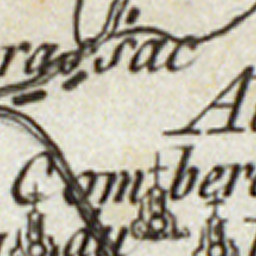 rassac
A
Comber
au